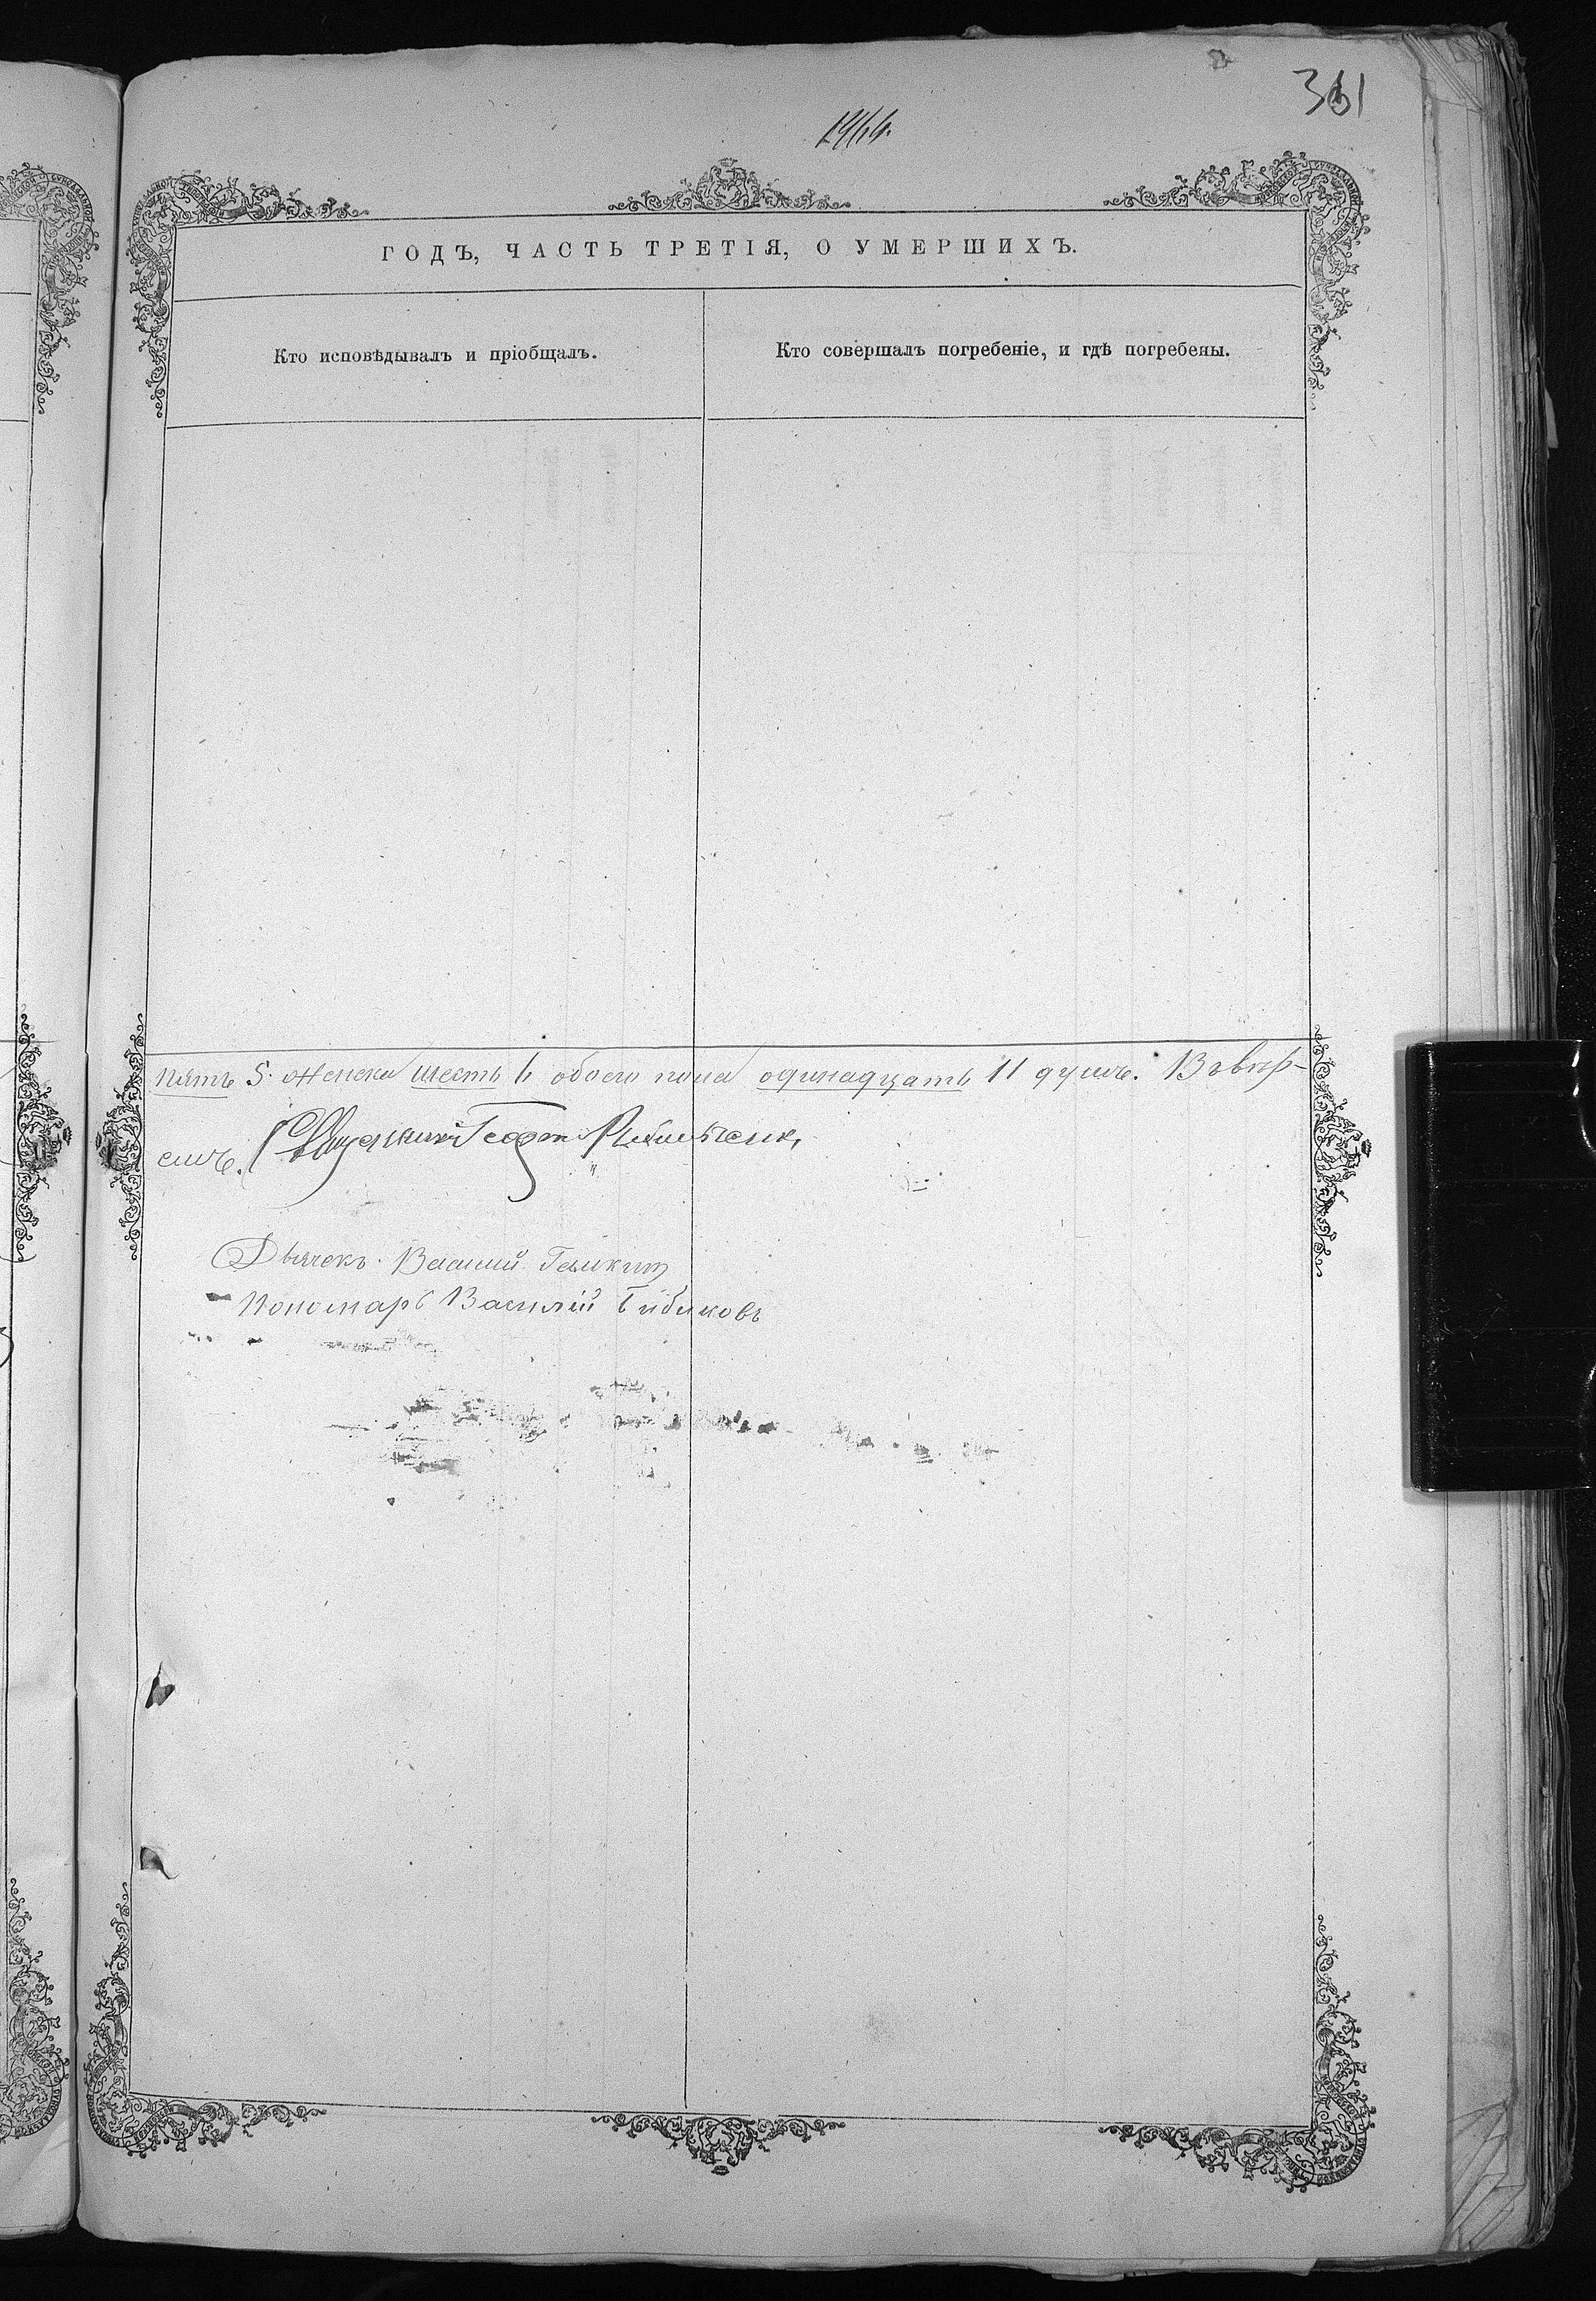 331
ГОДЪ, ЧАСТЬ ТРЕТІЯ, О УМЕРШИХЪ.
Кто исповѣдывалъ и пріобщалъ.
Кто совершалъ погребеніе, и гдѣ погребены.
пять 5. женска шесть 6 обоего пола одинадцать 11 душъ. Въ вѣр-
емъ. Священникъ Георгій
Дьячекъ Василій Галкинъ
Пономарь Василій Бибиковъ